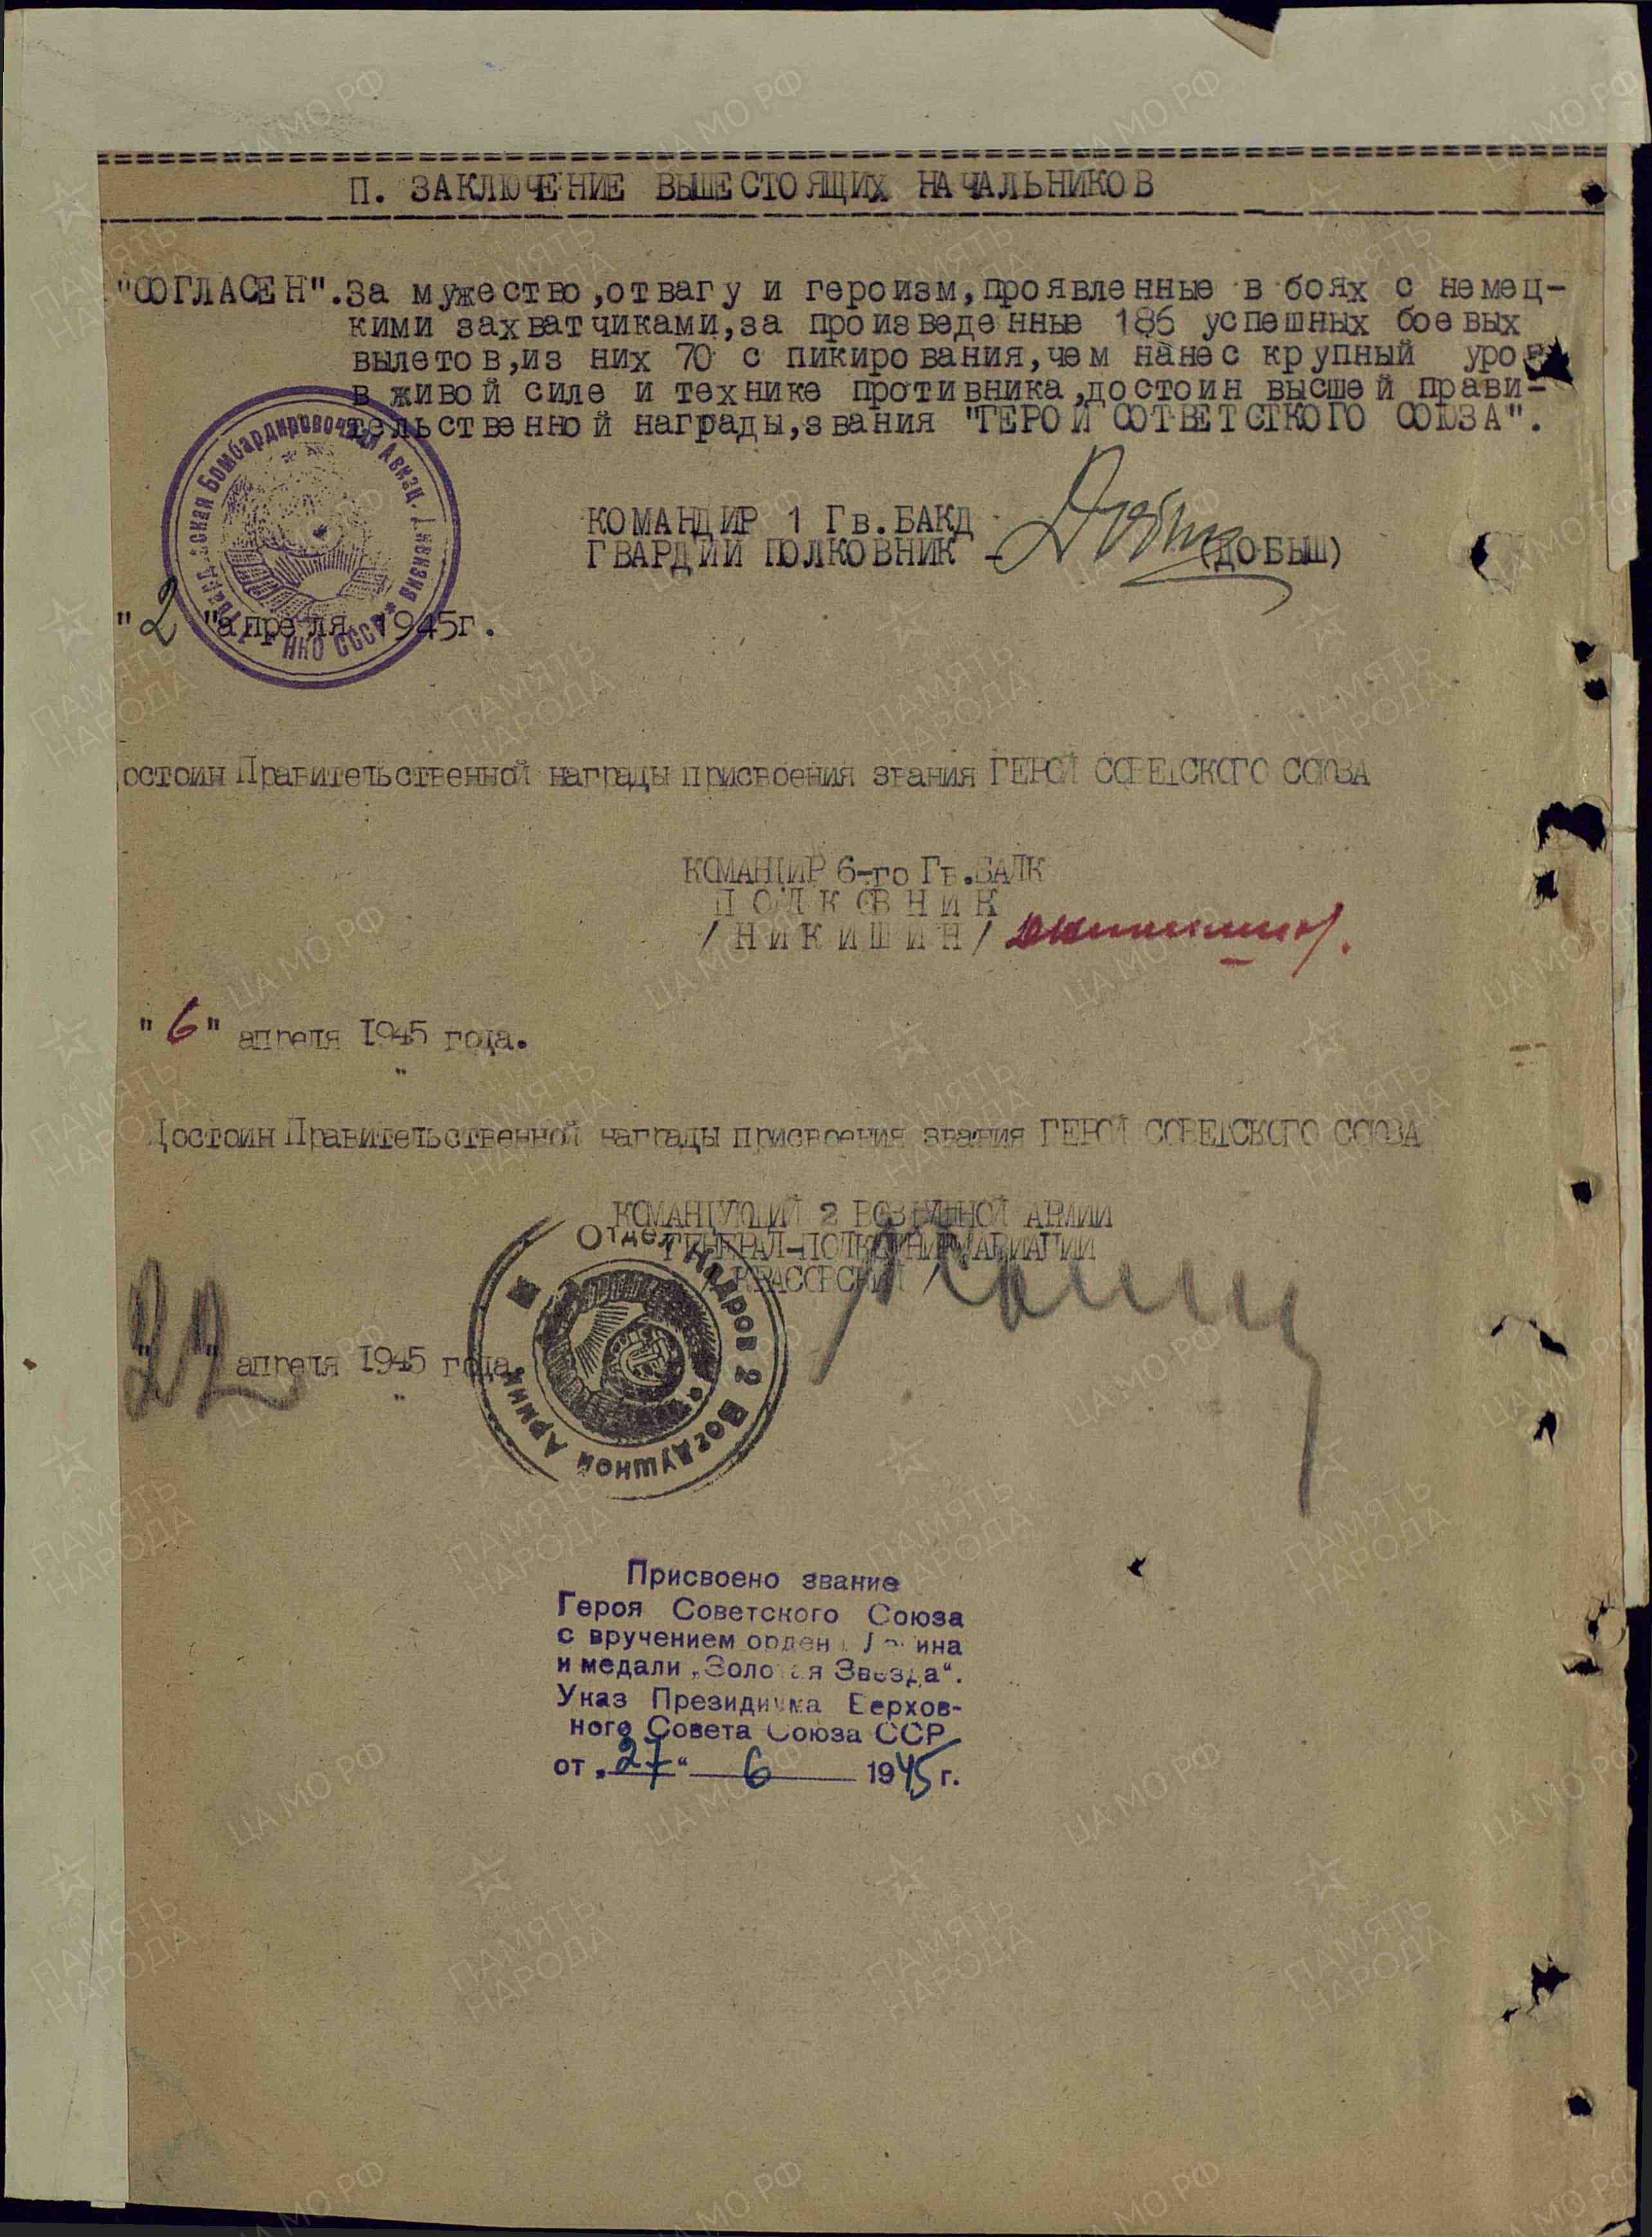 П. ЗАКЛЮЧЕНИЕ ВЫШЕСТОЯЩИХ НАЧАЛЬНИКОВ
"СОГЛАСЕН". За мужество, отвагу и героизм, проявленные в боях с немец-
кими захватчиками, за произведенные 186 успешных боевых
вылетов, из них 70 с пикирования, чем нанес крупный урон
в живой силе и технике противника, достоин высшей прави-
тельственной награды, звания "ГЕРОЙ СОТВЕТСТКОГО СОЮЗА".
КОМАНДИР 1 Гв. БАКД
ГВАРДИИ ПОЛКОВНИК - (ДОБЫШ)
"2 "апреля 1945г.
Бомбардировочная Авиац. Дивизия
НКО СССР
остоин Правительственной награды присвоения звания ГЕРОЙ СОВЕТСКОГО СОЮЗА
КОМАНДИР 6-го Гв. БАПК
ПОЛКОВНИК
/НИКИШИН/
"6" апреля 1945 года.
Достоин Правительственной награды присвоения звания ГЕРОЙ СОВЕТСКОГО СОЮЗА
КОМАНДУЮЩИЙ 2 ВОЗДУШНОЙ АРМИИ
ГЕНЕРАЛ-ПОЛКОВНИК АВИАЦИИ
/КРАСОВСКИЙ/
Отдел Кадров 2 Воздушной Армии
"22" апреля 1945 года.
Присвоено звание
Героя Советского Союза
с вручением ордена Ленина
и медали „Золотая Звезда“.
Указ Президиума Верхов-
ного Совета Союза ССР
от „27“ 6 1945 г.
ПАМЯТЬ НАРОДА
ЦА МО РФ